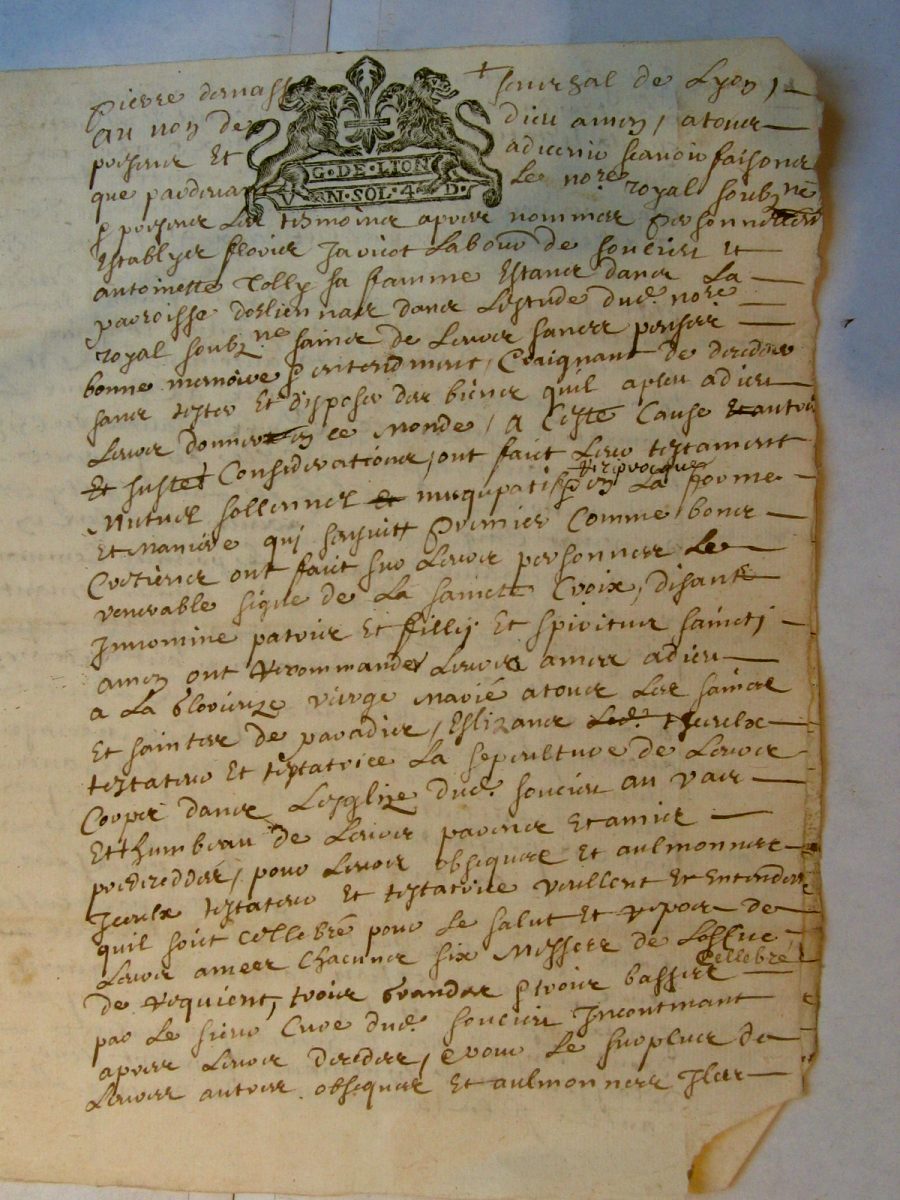 pierre dernass + journal de Lyon,
au nom de dieu amen, a tous
presens Et advenir scavoir faisons
G·DE·LION
V N·SOL·4 D·
que pardevant Le no.re royal soubz.ne
& presens Les tesmoins apres nommes personnellem.t
Establyes fleurie Javicot Labour de soucieu Et
antoinette Jolly sa famme Estans dans La
parroisse dorliennas dans Lestude dud. no.re
royal soubz.ne sains de Leurs sances penseés
bonne memoire & entendment, Craignant de deceder
sans tester Et disposer des biens quil a pleu a dieu
Leurs donner en ce monde, a Ceste Cause Et autres
Et justes Considerations, ont faict Leur testament
Mutuel sollennel Et nuqupatif reciproque & en La forme
Et Maniere qui sensuitt Premier Comme bons
Crestiens ont faict sur Leurs personnes Le
venerable signe de La saincte Croix, disant
Innomine patris Et fillij Et spiritus saincti
amen ont recommandes Leurs ames a dieu
a La glorieuze vierge Marié a tous Les saincts
Et sainctes de paradis, Eslizans Led. Iceulx
testateur Et testatrice La sepoulture de Leurs
Corps dans Lesglize dud. soucieu au vas
Et thumbeau de Leurs parens Et amis
predeceddés, pour Leurs obseques Et aulmonnes
Iceulx testateur Et testatrice veullent Et Entendent
quil soict cellebré pour Le salut Et repos de
Leurs ames Chacunne six Messes de Loffice
de requient, trois grandes & trois basses Cellebré
par Le sieur Cure dud. soucieu Incontinant
apres Leurs deceder, & pour Le surplus de
Leurs autres obseques Et aulmonnes Ilz